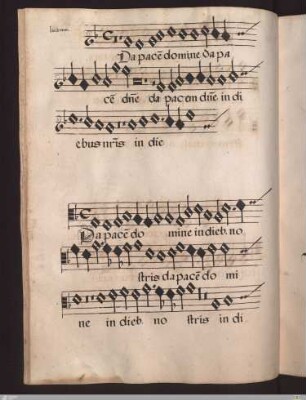 Da pacē domine da pa
cē dn̄e da pacem dn̄e in di
ebus nr̄is in die
Da pacē do mine in dieb. no
stris da pacē do mi
ne in dieb. no stris in di